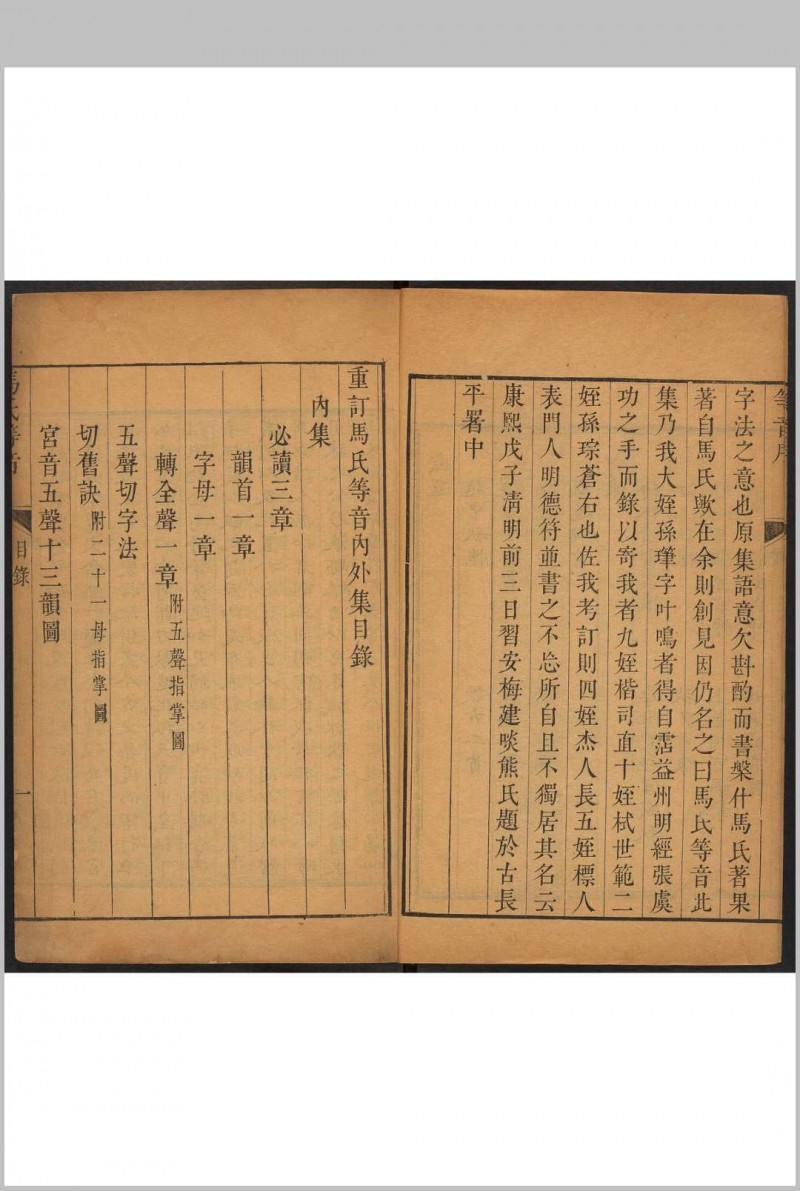 等音序
字法之意也原集語意欠斟酌而書槃什馬氏著果
著自馬氏歟在余則創見因仍名之曰馬氏等音此
集乃我大姪孫瑾字叶鳴者得自霑益州明經張虞
功之手而錄以寄我者九姪楷司直十姪栻世範二
姪孫琮蒼右也佐我考訂則四姪杰人長五姪標人
表門人明德符並書之不忘所自且不獨居其名云
康熙戊子淸明前三日習安梅建啖熊氏題於古長
平署中
重訂馬氏等音內外集目錄
內集
必讀三章
韻首一章
字母一章
轉全聲一章附五聲指掌圖
五聲切字法
切舊訣附二十一母指掌圖
宮音五聲十三韻圖
馬氏等音
目錄
一